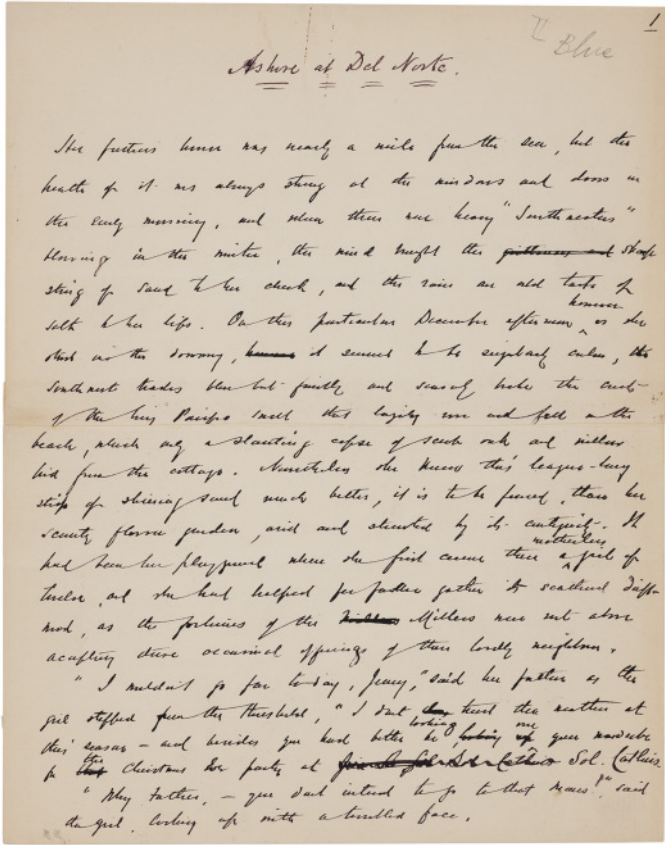 1
II
Blue
Ashore at Del Norte.
Her father's house was nearly a mile from the sea, but the
breath of it was always strong at the windows and doors in
the early morning, and when there were heavy "Southwesters"
blowing in the winter, the wind brought the sharp
sting of sand to her cheek, and the rain an odd taste of
salt to her lips. On this particular December afternoon however as she
stood in the doorway, it seemed to be singularly calm, the
southwest trades blew but faintly and scarcely broke the crests
of the long Pacific swell that lazily rose and fell on the
beach, which only a slanting copse of scrub oak and willow
hid from the cottage. Nevertheless she knew this league-long
strip of shining sand much better, it is to be feared, than her
scanty flower garden, arid and stunted by its contiguity. It
had been her playground when she first came there a motherless girl of
twelve, and she had helped her father gather its scattered drift-
wood, as the fortunes of the Millers were not above
accepting these occasional offerings of their lordly neighbour.
"I wouldn't go far to-day, Jenny," said her father as the
girl stepped from the threshold, "I don't trust the weather at
this season – and besides you had better be looking over your wardrobe
for the Christmas Eve party at Sol. Catlin's.
"Why Father, – you don't intend to go to that man's?" said
the girl, looking up with a troubled face.